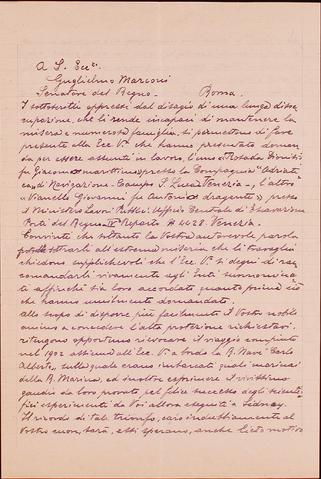 A S. Ecc.
Guglielmo Marconi
Senatore del Regno - Roma.
I sottoscritti oppressi dal disagio di una lunga disoc-
cupazione, che li rende incapaci di mantenere la
misera e numerosa famiglia, si permettono di fare
presente alla Ecc. V. che hanno presentato doman-
da per essere assunti in lavoro, l'uno "Rosada Dionisio
fu Giacomo marittimo" presso la Compagnia "Adriati-
ca" di Navigazione - Campo S. Luca Venezia -, l'altro
"Vianello Giovanni fu Antonio dragante", presso
il Ministero Lavori Pubblici Ufficio Centrale di Escavazione
Porti del Regno Reparto Venezia.
Convinti che soltanto la Vostra autorevole parola
sottrarli all'estrema miseria che li travaglia
chiedono supplichevoli che l'Ecc. V. si degni di rac-
comandarli vivamente agli Enti suonomina-
ti affinchè sia loro accordato quanto prima ciò
che hanno umilmente domandato.
Allo scopo di disporre più facilmente il Vostro nobile
animo a concedere l'alta protezione richiestavi,
ritengono opportuno rievocare il viaggio compiuto
nel 1902 attimo all'Ecc. V. a bordo la R. Nave "Carlo
Alberto", sulla quale erano imbarcati quali marinai
della R. Marina, ed inoltre esprimere il vivissimo
gaudio da loro provato pel felice successo degli scienti-
fici esperimenti da Voi allora eseguiti a Sidney.
Il ricordo di tale trionfo, caro indubbiamente al
Vostro cuore, sarà, essi sperano, anche lieto motivo